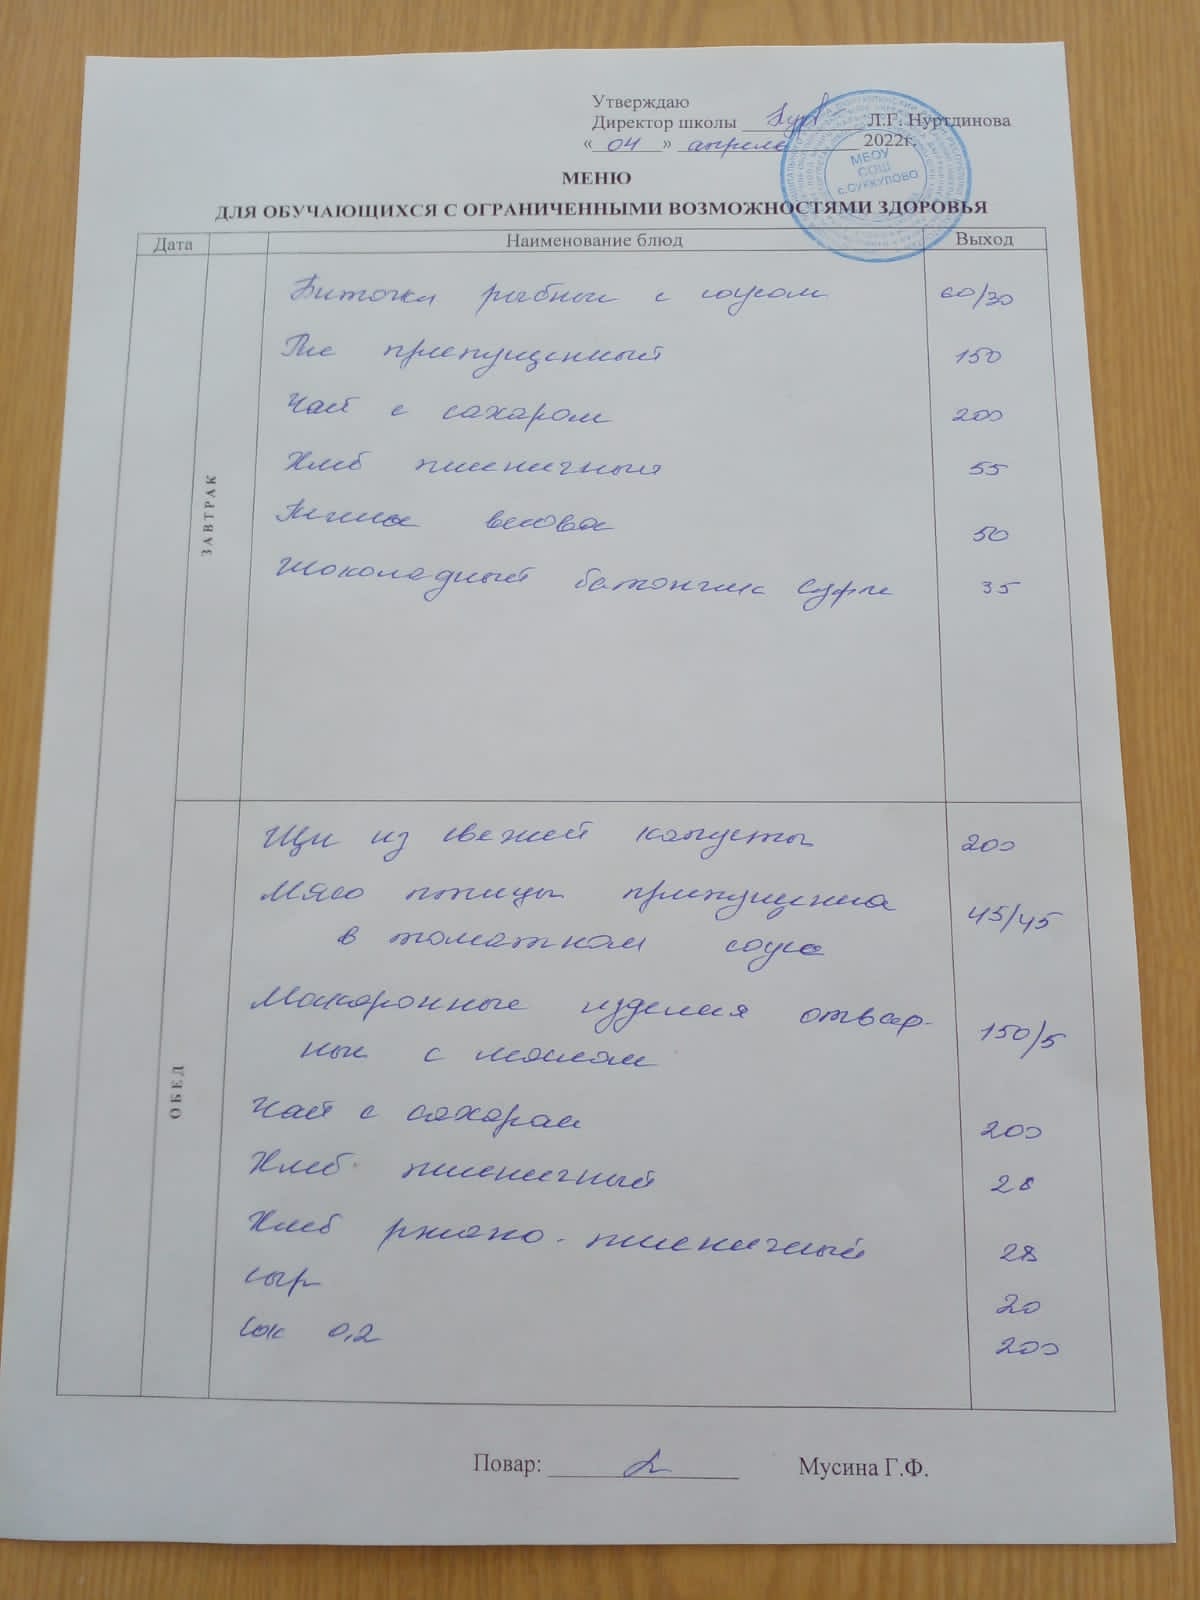 Утверждаю
Директор школы Л.Г. Нуртдинова
« 04 » апреля 2022г.
МБОУ
СОШ
с.СУККУЛОВО
МЕНЮ
ДЛЯ ОБУЧАЮЩИХСЯ С ОГРАНИЧЕННЫМИ ВОЗМОЖНОСТЯМИ ЗДОРОВЬЯ
Дата Наименование блюд Выход
ЗАВТРАК
Биточки рыбные с соусом 60/30
Рис припущенный 150
Чай с сахаром 200
Хлеб пшеничный 55
весовое 50
Шоколадный батончик суфле 35
ОБЕД
Щи из свежей капусты 200
Мясо птицы припущенна 45/45
в томатном соусе
Макаронные изделия отвар-
ные с маслом 150/5
Чай с сахаром 200
Хлеб пшеничный 28
Хлеб ржано-пшеничный 28
сыр 20
сок 0,2 200
Повар: Мусина Г.Ф.